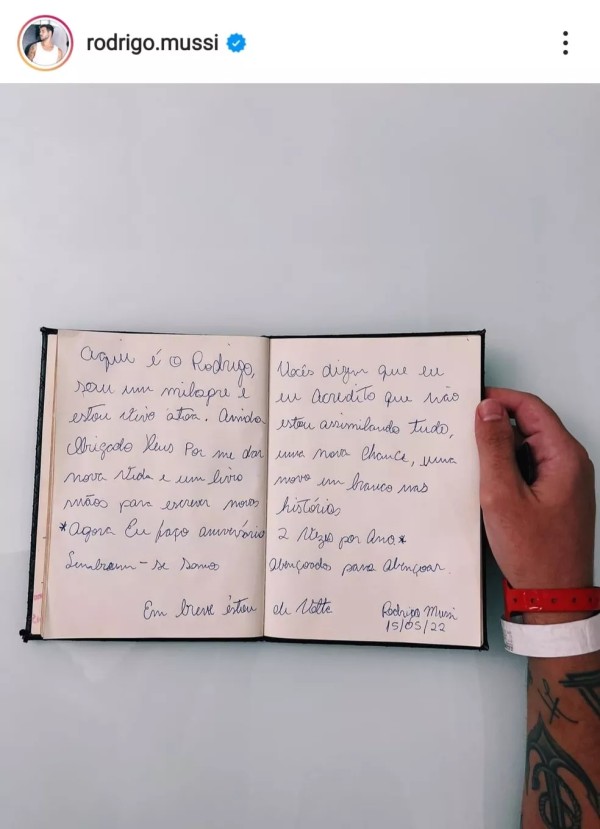 rodrigo.mussi
Aqui é o Rodrigo, Vocês dizem que eu
sou um milagre e eu Acredito que não
estou vivo atoa. Ainda estou assimilando tudo,
Obrigado Deus Por me dar uma nova chance, uma
nova vida e um livro novo em branco nas
mãos para escrever novas histórias
*Agora Eu faço aniversário 2 Vezes por Ano*
Lembrem-se Somos Abençoados para Abençoar.
Em breve estou de Volta
Rodrigo Mussi
15/05/22